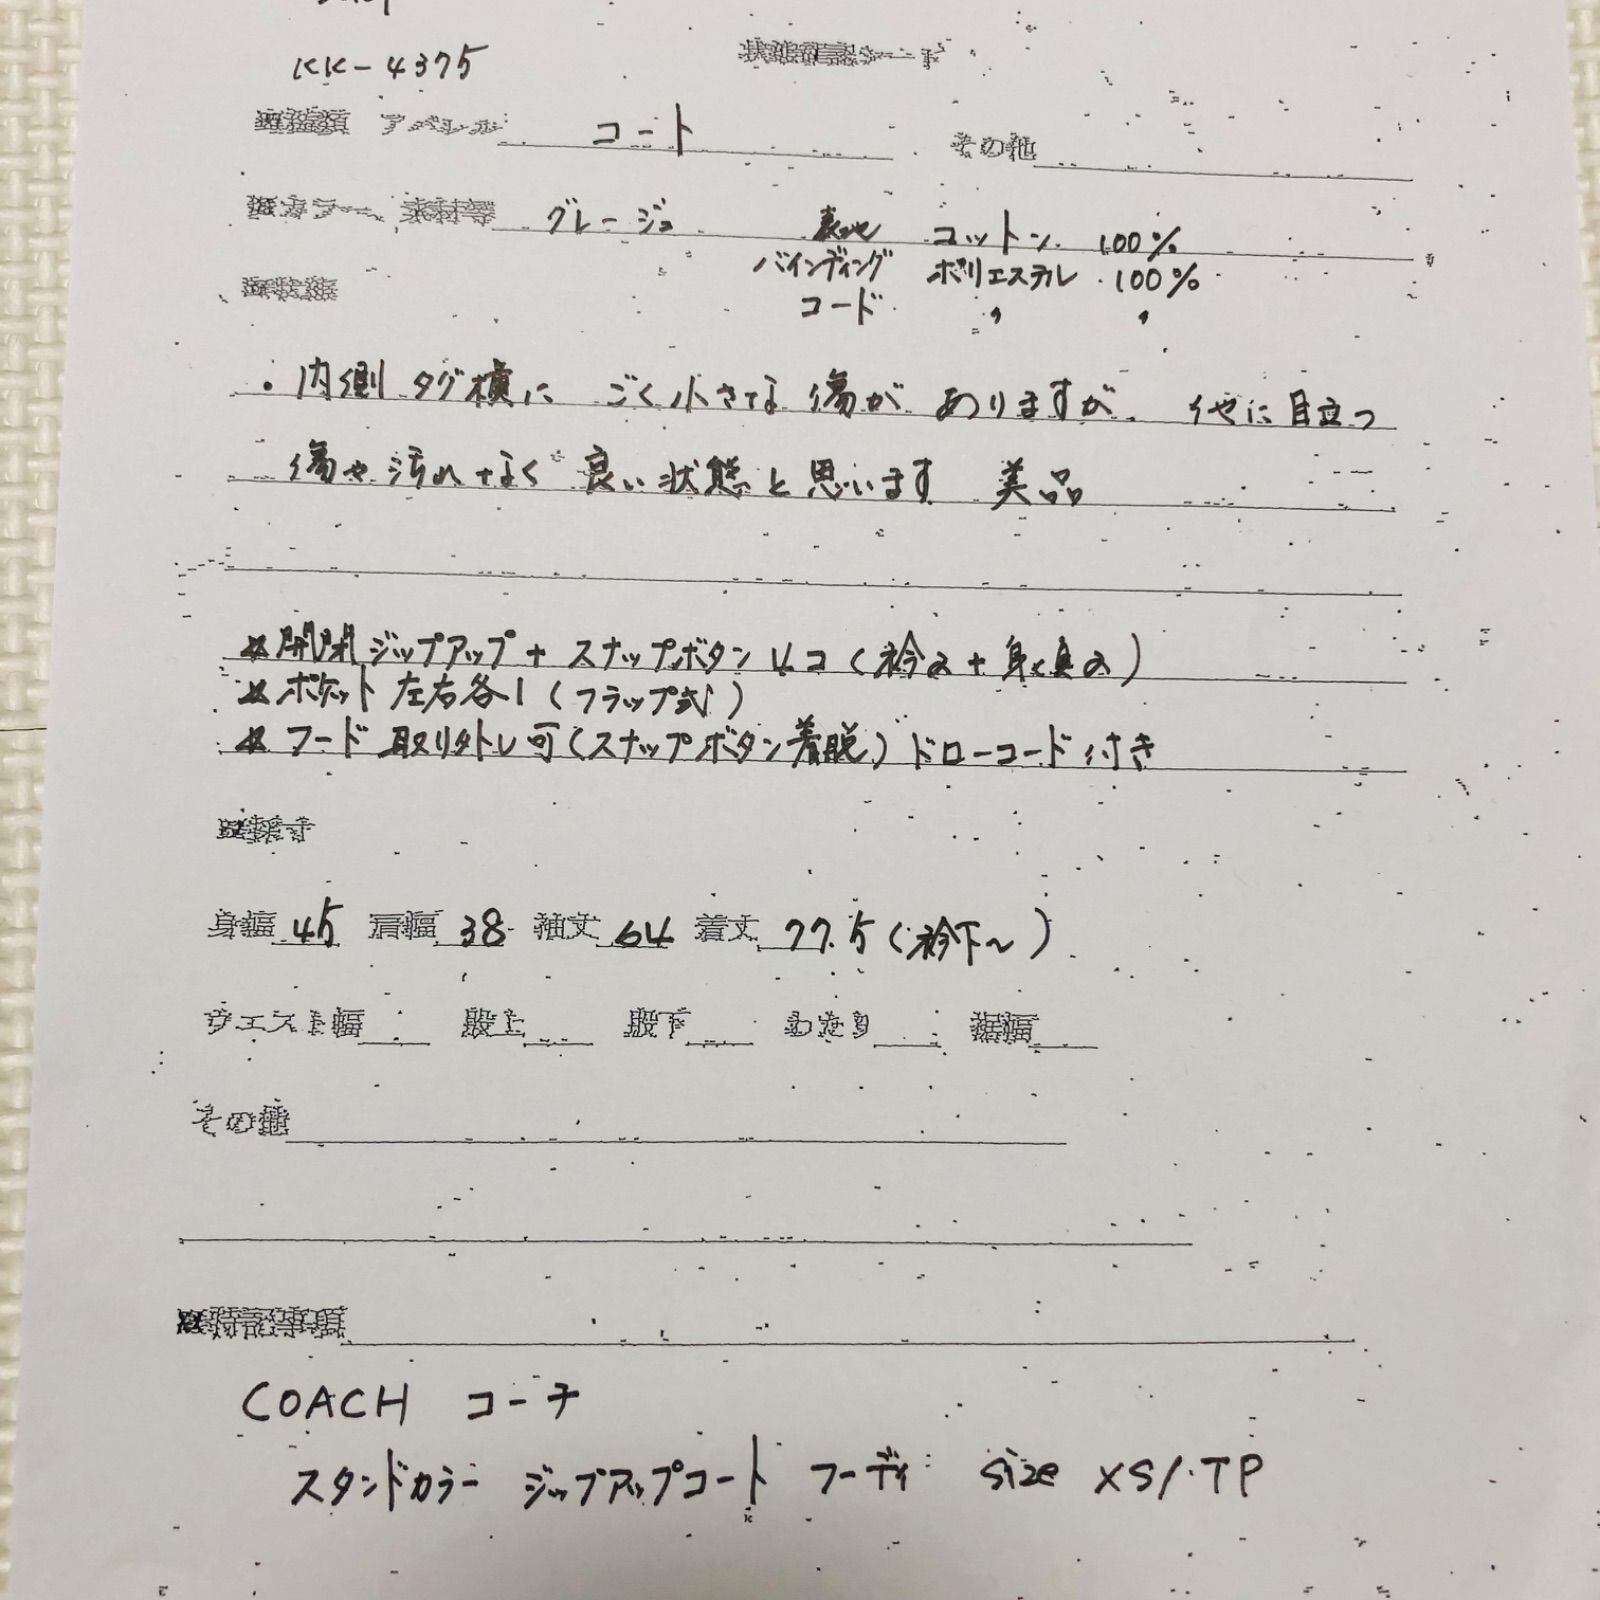 KK-4375
状態確認シート
アパレル コート その他
カラー、素材等 グレージュ 表地 コットン 100%
バインディング ポリエステル 100%
コード 〃 〃
状態
・内側 タグ横に ごく小さな傷が ありますが、他に目立つ
傷や汚れなく 良い状態と思います 美品
※開閉 ジップアップ+スナップボタン
※ポケット 左右各1(フラップ式)
※フード 取り外し可(スナップボタン着脱)ドローコード付き
採寸
身幅 45 肩幅 38 袖丈 64 着丈 77.5(衿下~)
ウエスト幅 股上 股下 わたり 裾幅
その他
特記事項
COACH コーチ
スタンドカラー ジップアップコート フーディ size XS/TP